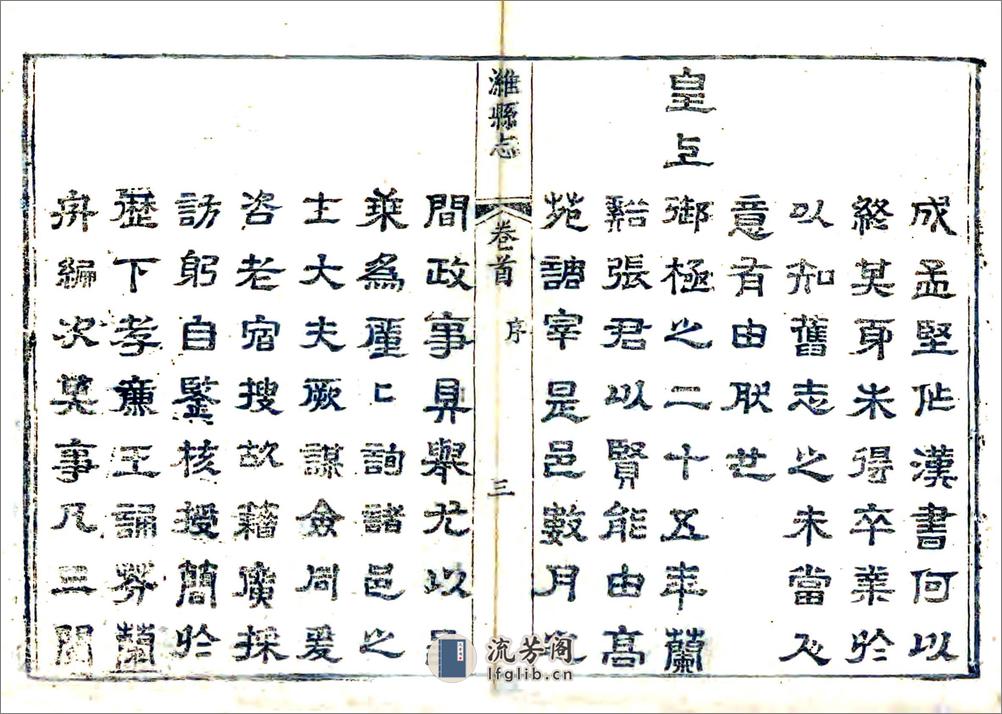 成孟堅作漢書何以
終其身未得卒業於
以知舊志之未當人
意有由耿也
皇上
御極之二十五年蘭
谿張君以賢能由高
苑調宰是邑數月
濰縣志
卷首
序
三
間政事具舉尤以
乘為廑〻詢諸邑之
士大夫厥謀僉同爰
咨老宿搜故籍廣採
訪躬自鑒核授簡於
歷下孝廉王誦芬蘭
舟編次其事凡三閱
流芳閣
lfglib.cn